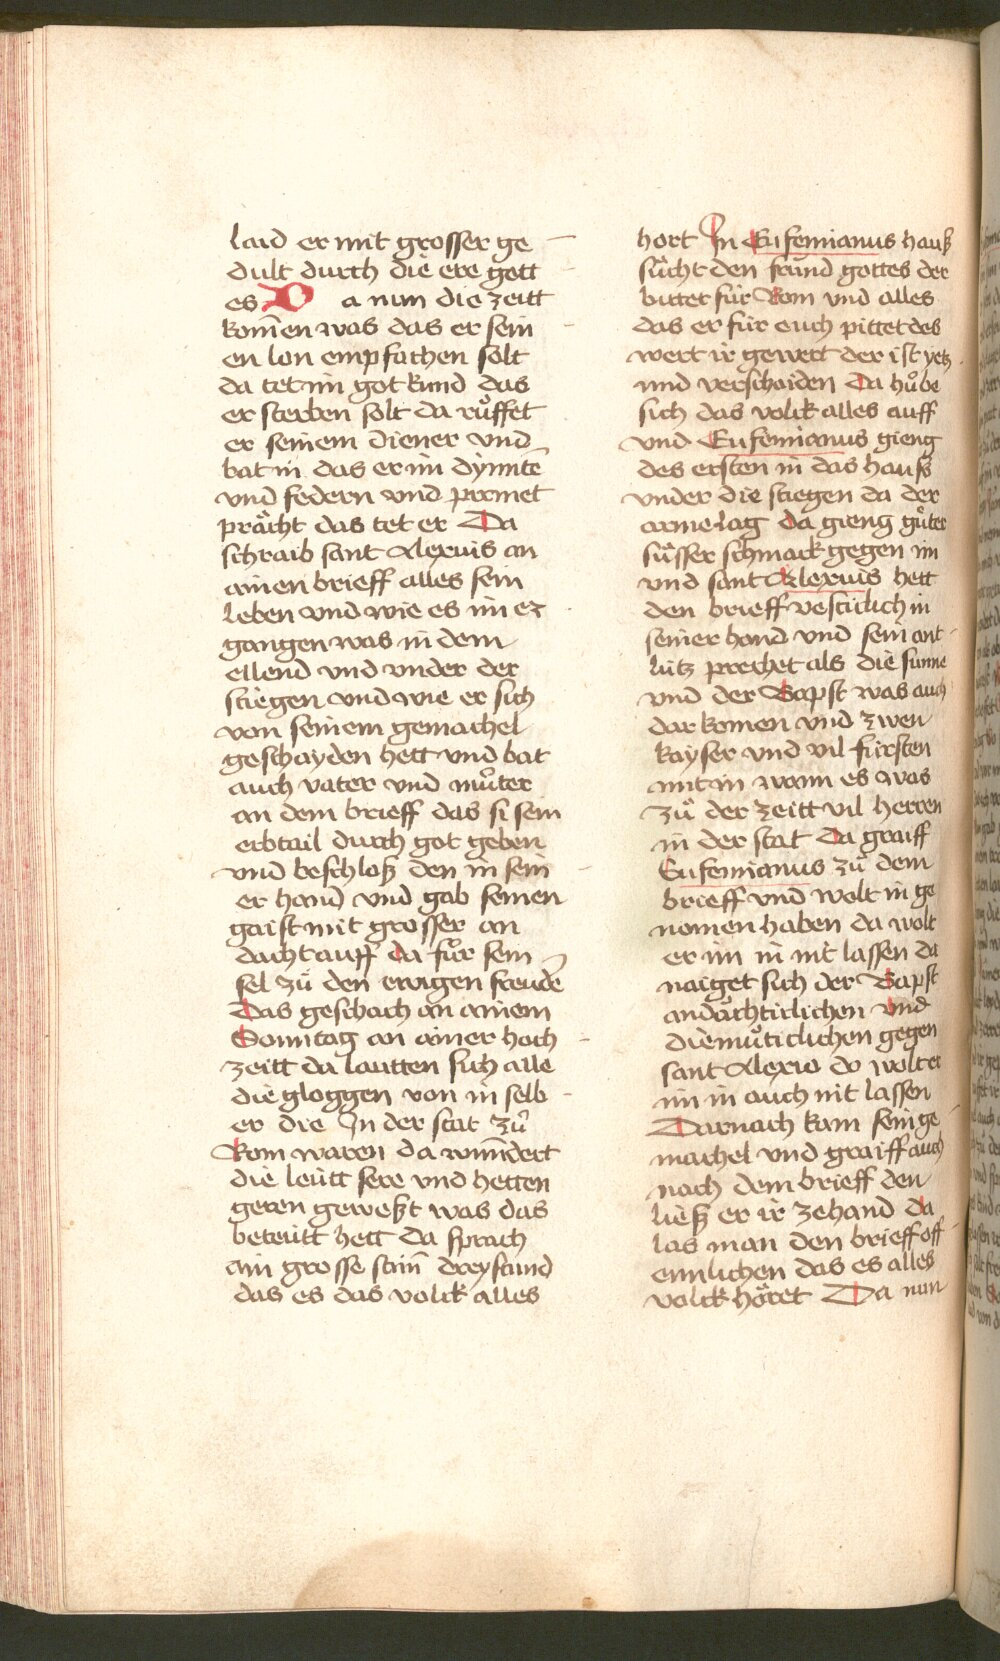 laid er mit grosser ge
dult durch die ere gott
es Da nun die zeitt
kom̄en was das er sein
en lon empfachen solt
da tet im got kund das
er sterben solt da růffet
er seinem diener vnd
bat in das er im dynntē
vnd federn vnd permet
prächt das tet er Da
schraib sant Alexius an
ainen brieff alles sein
leben vnd wie es im er
gangen was in dem
ellend vnd vnder der
stiegen vnd wie er sich
von seinem gemachel
geschayden hett vnd bat
auch vater vnd můter
an dem brieff das si sein
erbtail durch got geben
vnd beschloß den in sein
er hand vnd gab seinen
gaist mit grosser an
dacht auff da fůr sein
sel zů den ewigen freudē
Das geschach an ainem
Sonntag an ainer hoch
zeitt da lautten sich alle
die gloggen von in selb
er die In der stat zů
Rom waren da wund̄ert
die leütt sere vnd hetten
geren geweßt was das
beteütt hett Da sprach
ain grosse stim̄ dreystund
das es das volck alles
hort In Eufemianus hauß
sůcht den fraind gottes der
bittet für Rom vnd alles
das er für euch pittet des
wert ir gewert der ist yetz
und verschaiden Da hůbe
sich das volck alles auff
vnd Eufemianus gieng
des ersten in das hauß
vnder die stiegen da der
arme lag da gieng gůter
sůsser schmack gegen im
vnd sant Alexius hett
den brieff vesticlich in
seiner hand vnd sein ant
lütz prechet als die sunne
vnd der Bapst was auch
dar komen vnd zwen
kayser vnd vil fürsten
mit in wann es was
zů der zeitt vil herren
in der stat Da graiff
Eufemianus zů dem
brieff vnd wolt in ge
nomen haben da wolt
er im in nit lassen da
naiget sich der Bapst
andächticlichen vnd
diemůticlichen gegen
sant Alexio do wolt er
im in auch nit lassen
Darnach kam sein ge
machel vnd graiff auch
nach dem brieff den
ließ er ir zehand da
las man den brieff off
ennlichen das es alles
volck höret Da nun